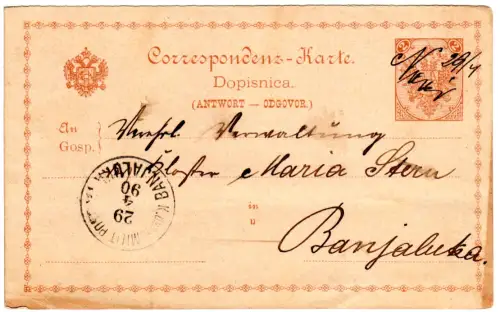 Correspondenz-Karte.
Dopisnica.
(ANTWORT — ODGOVOR)
2
2
Novi 29/4
An
Gosp.
Verwaltung
Kloster Maria Stern
in
u
Banjaluka.
BANJALUKA
29
4
90